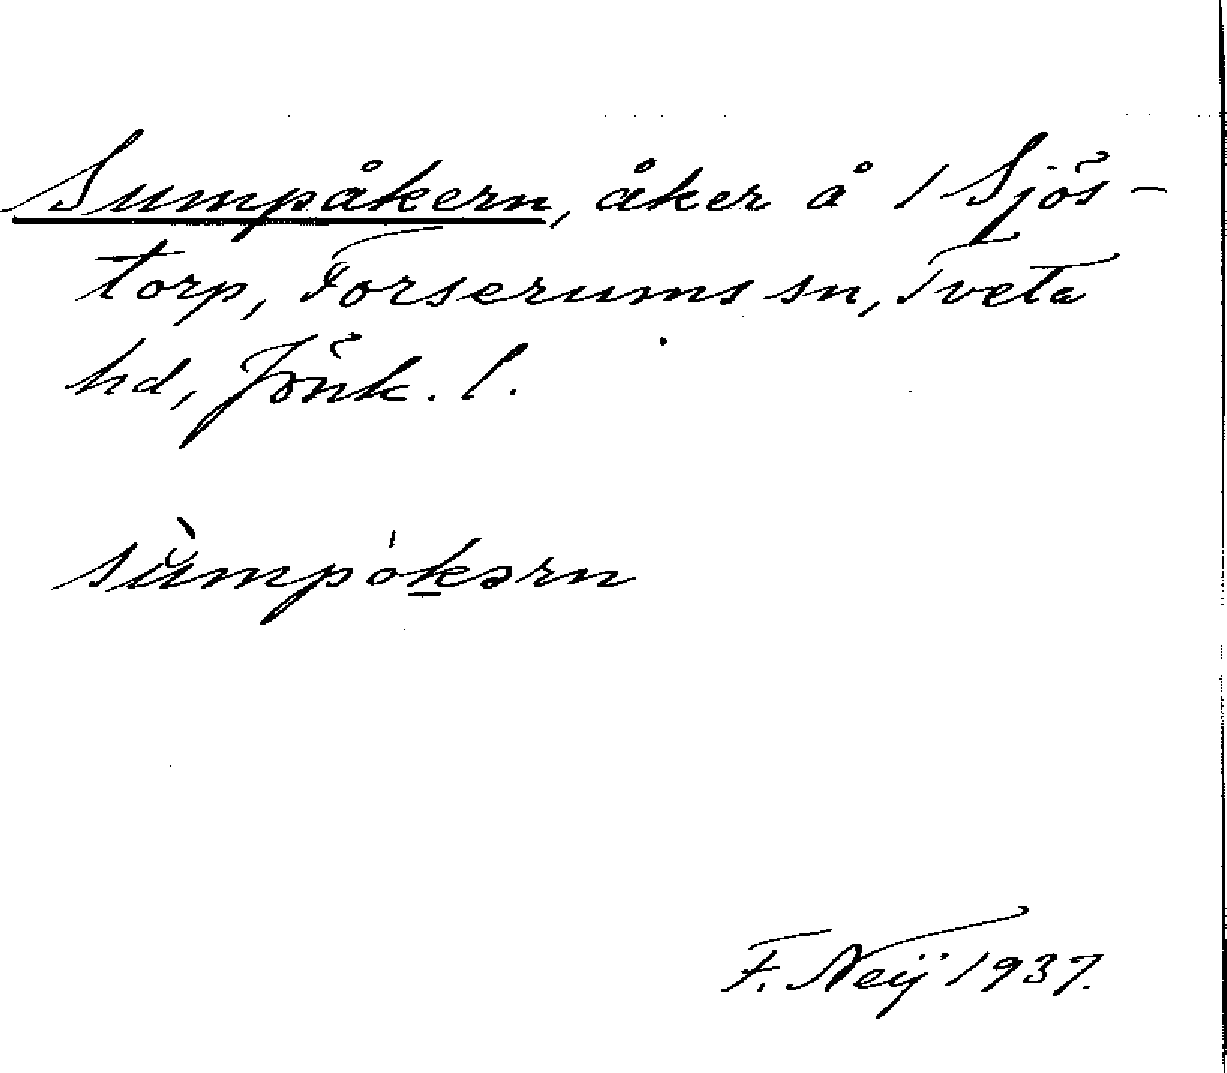 Sumpåkern, åker å 1 Sjös-
torp, Forserums sn, Tveta
hd, Jönk. l.
sùmpókərn
F. Neij 1937.